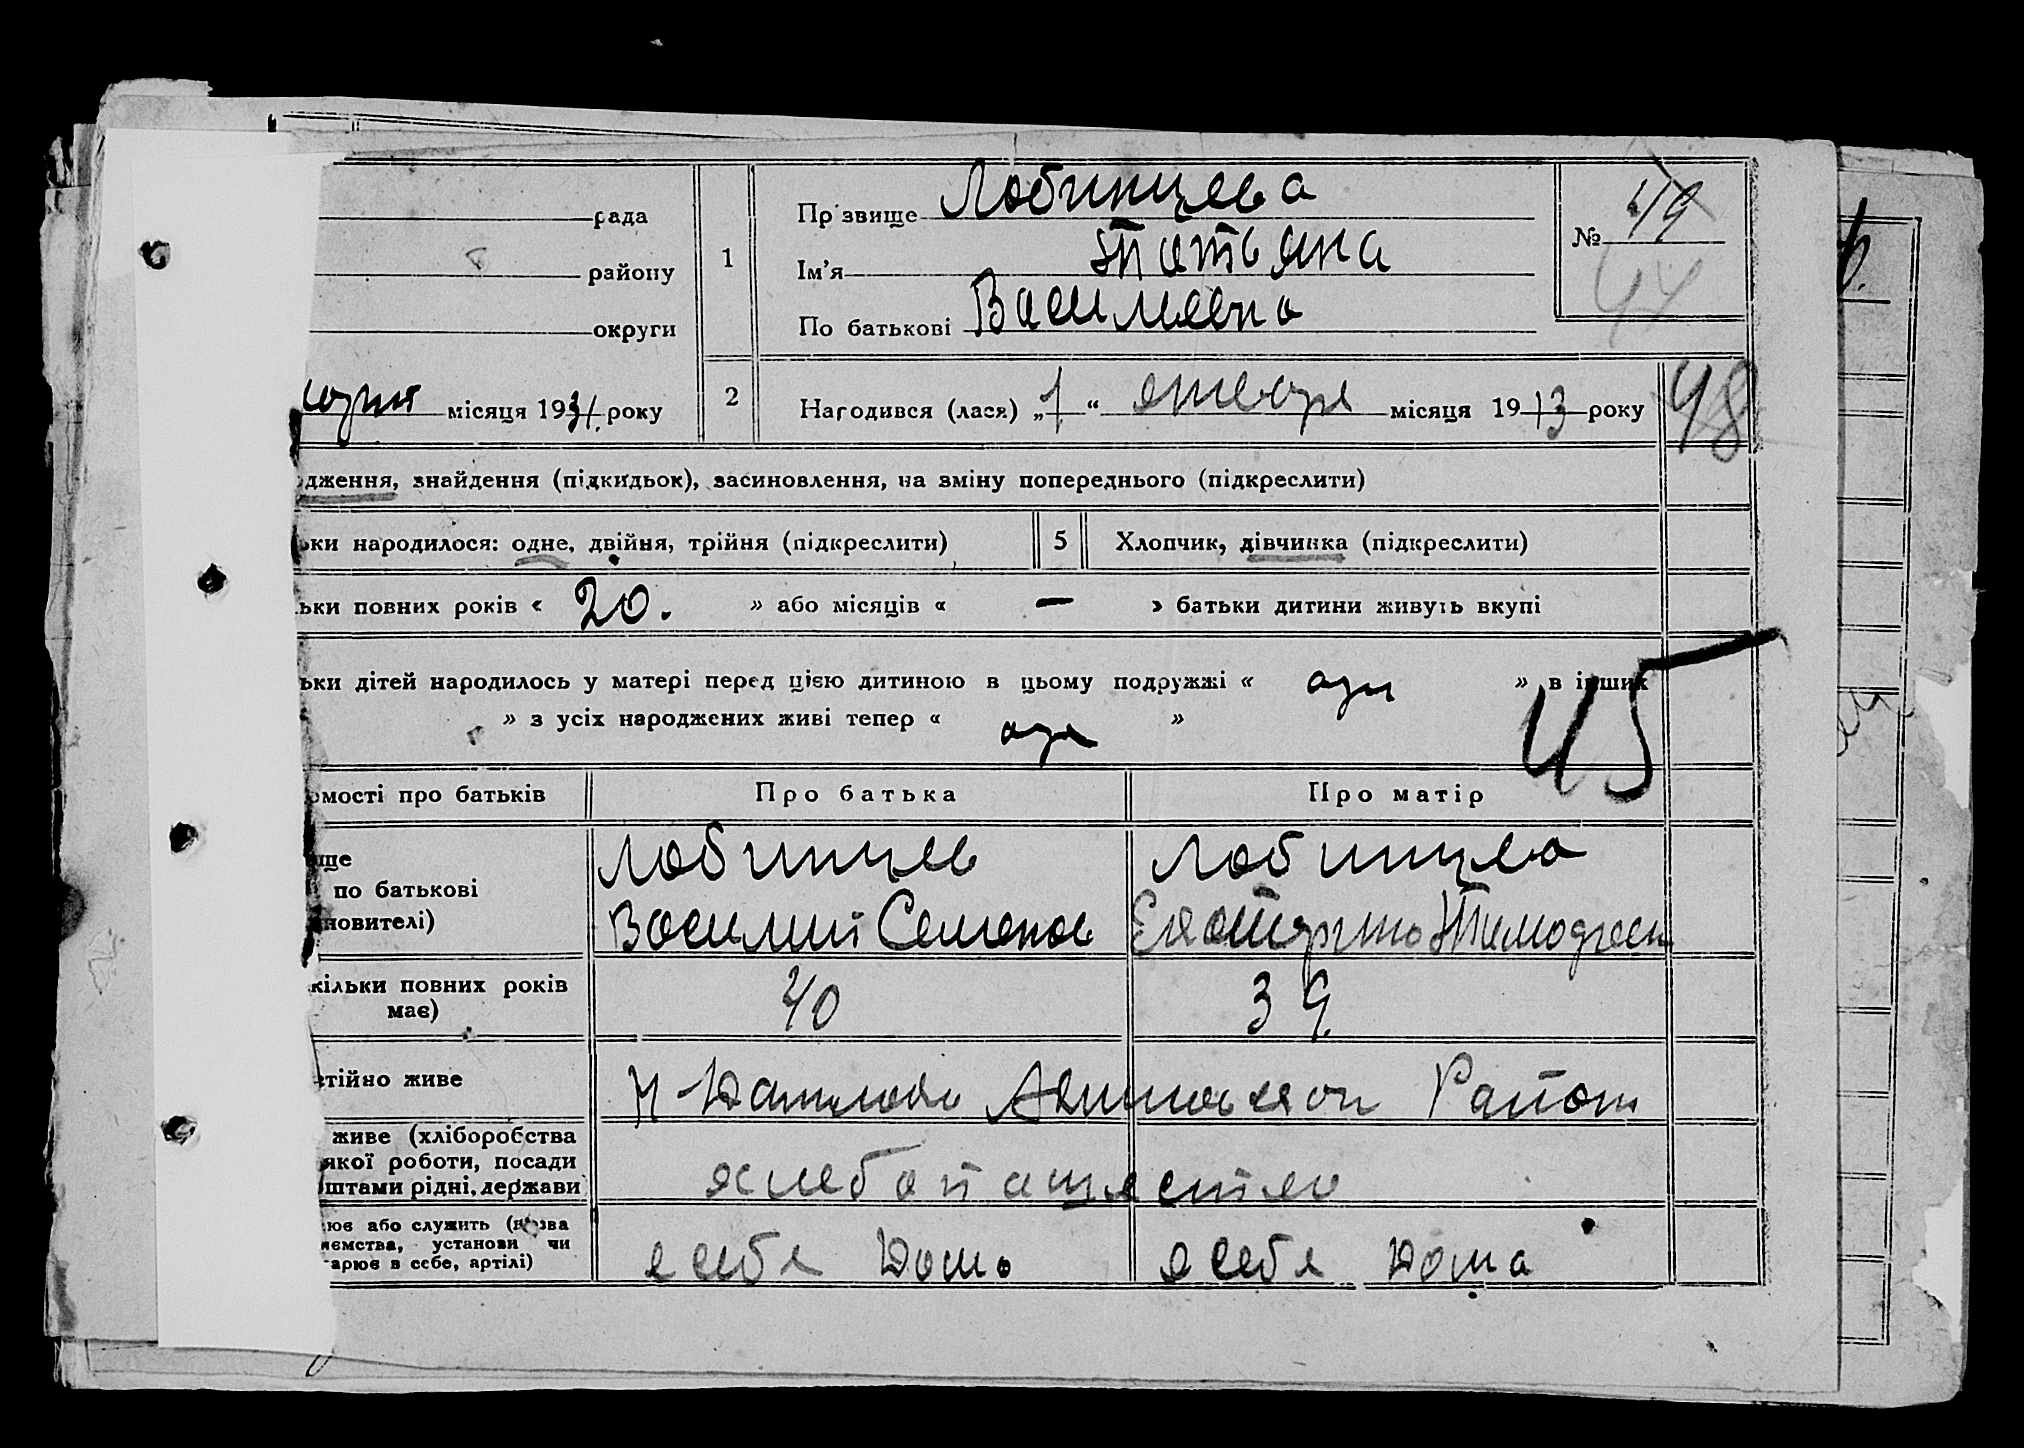 рада
району
округи
місяця 1931. року
1
Прізвище Лобинцева
Ім'я Татьяна
По батькові Василевна
№ 49
44
2
Народився (лася) „1“ января місяця 1913 року
48
дження, знайдення (підкидьок), засиновлення, на зміну попереднього (підкреслити)
ьки народилося: одне, двійня, трійня (підкреслити)
5
Хлопчик, дівчинка (підкреслити)
ьки повних років « 20. » або місяців « — » батьки дитини живуть вкупі
ьки дітей народилось у матері перед цією дитиною в цьому подружжі « » в інших
» з усіх народжених живі тепер « »
45
мості про батьків
Про батька
Про матір
ще
по батькові
новителі)
Лобинцев
Василий Семенов
Лобинцева
Екатерина Тимофеев
кільки повних років
має)
40
39
стійно живе
Район
живе (хліборобства
якої роботи, посади
штами рідні, держави
ює або служить (назва
иємства, установи чи
арює в себе, артілі)
в себе дома
в себе дома